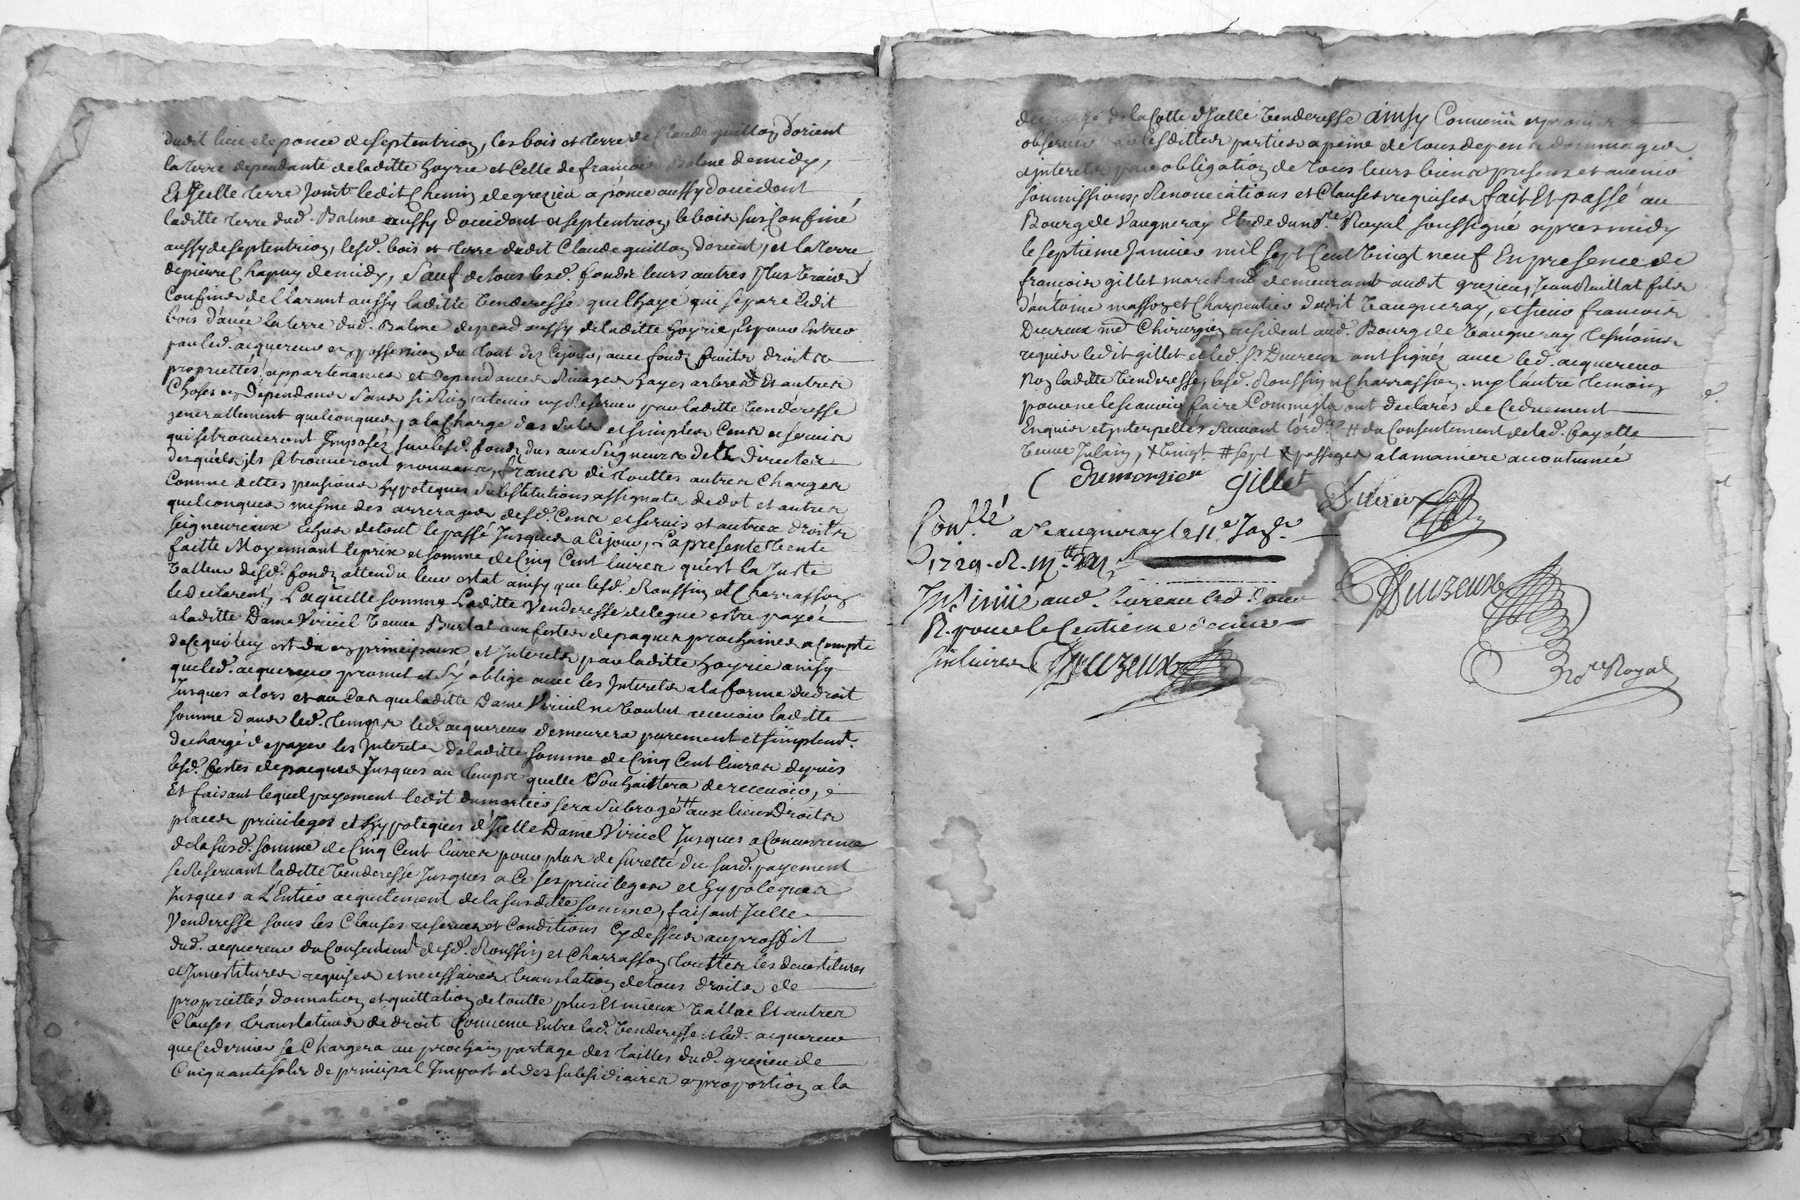 dudit lieu de ponce de septentrion, les bois et terre de Claude guillon d'orient
la terre dependante de laditte hoyrie et Celle de francois Balme de midy,
Et Jcelle terre Joint ledit Chemin de grezieu a ponce aussy d'occident
laditte terre dud. Balme aussy d'occident et septentrion, le bois sus Confiné
aussy de septentrion, lesd. bois et terre dudit Claude guillon d'orient, et la terre
de pierre Chapuy de midy, sauf de tous lesd. fonds leurs autres plus vrais
Confins declarant aussy laditte Venderesse que l'haye qui separe ledit
bois d'avec la terre dud. Balme depend aussy de laditte hoyrie, Et pour Entrer
par led. acquereur en possession du tout dez Cejour, avec fonds fruits droits
proprietés appartenances et dependances Suages hayes arbres Et autres
Choses en Dependans sans si rien retenir ny Reserver par laditte Venderesse
generallement quelconques, a la Charge des Suls et simples Cens et servis
qui se trouveront Jmposés sur lesd. fonds dus aux Seigneurs de la directe
desquels ils se trouveront mouvans, francs de touttes autres Charges
Comme dettes pensions hypoteques Substitutions assignats de dot et autres
quelconques mesme des arrerages desd. Cens et servis et autres droits
seigneuriaux Echus de tout le passé Jusques a Cejour, La presente Vente
faitte Moyennant le prix et somme de Cinq Cent livres qu'est la Juste
Valleur desd. fonds attendu leur estat ainsy que lesd. Roussin et Charrasson
le declarent, Laquelle somme Laditte Venderesse delegue estre payée
a laditte Dame Viriel Veuve Burlat aux festes de paques prochaines a Compte
de Ce qui luy est du en principaux et Jnterets par laditte hoyrie ainsy
que led. acquereur promet et s'y oblige avec les Jnterets a la forme du droit
Jusques alors et au Cas que laditte Dame Viriel ne Voulut recevoir laditte
somme dans led. temps led. acquereur demeurera purement et simplemt.
dechargé de payer les Jnterets de laditte somme de Cinq Cent livres depuis
lesd. festes de paques Jusques au temps quelle Souhaittera de recevoir, e
Et faisant lequel payement ledit dumortier sera Subrogé aux lieux Droits
places privileges et hypoteques d'Jcelle Dame Viriel Jusques a Concurrence
de la susd. somme de Cinq Cent livres pour plus de surette du susd. payement
se Reservant laditte Venderesse Jusques a Ce ses privileges et hypoteques
Jusques a L'Entier acquitement de la susditte somme, faisant Jcelle
Venderesse sous les Clauses reserves et Conditions Cy dessus au proffit
dud. acquereur du Consentemt. desd. Roussin et Charrasson touttes les devestitures
et Jnvestitures requises et necessaires translation de tous droits de
proprietés donnation et quittation de toutte plus Et mieux Vallue Et autres
Clauses translatives de droit Convenu Entre lad. Venderesse et led. acquereur
que Ce dernier se Chargera au prochain partage des tailles dud. grezieu de
Cinquante sols de principal Jmpost et des subsidiaires a proportion a la
decharge de la Cotte d'Jcelle Venderesse ainsy Convenu et promis
observer par lesdittes parties a peine de tous depens dommages
et jnterets par obligation de tous leurs biens presens et avenir
soumissions, Renonciations et Clauses requises fait Et passé au
Bourg de Vaugneray Etude du nore. Royal soussigné apres midy
le septieme Janvier mil sept Cent Vingt neuf En presence de
francois gillet marchand demeurant audit grezieu, Jean Ruillat fils
d'antoine masson et Charpentier dudit Vaugneray, et sieur francois
Ducreux me. Chirurgien resident aud. Bourg de Vaugneray temoins
requis ledit gillet et led. sr. Ducreux ont signés avec led. acquereur
Non laditte Venderesse, lesd. Roussin et Charrasson ny l'autre temoin
pour ne le scavoir faire Comme ils ont declarés de Ce duement
Enquis et jnterpelles suivant l'ord. # du Consentement de lad. Cayolle
Veuve Julain, # Vingt # sept # passages a la maniere accoutumée
C dumortier gillet Ducreux
Conllé a Vaugneray le 11e Janr.
1729. R.
Jnsinué aud. bureau led. Jour
R. pour le Centieme denier
six livres Duzeux
Duzeux
nore Royal